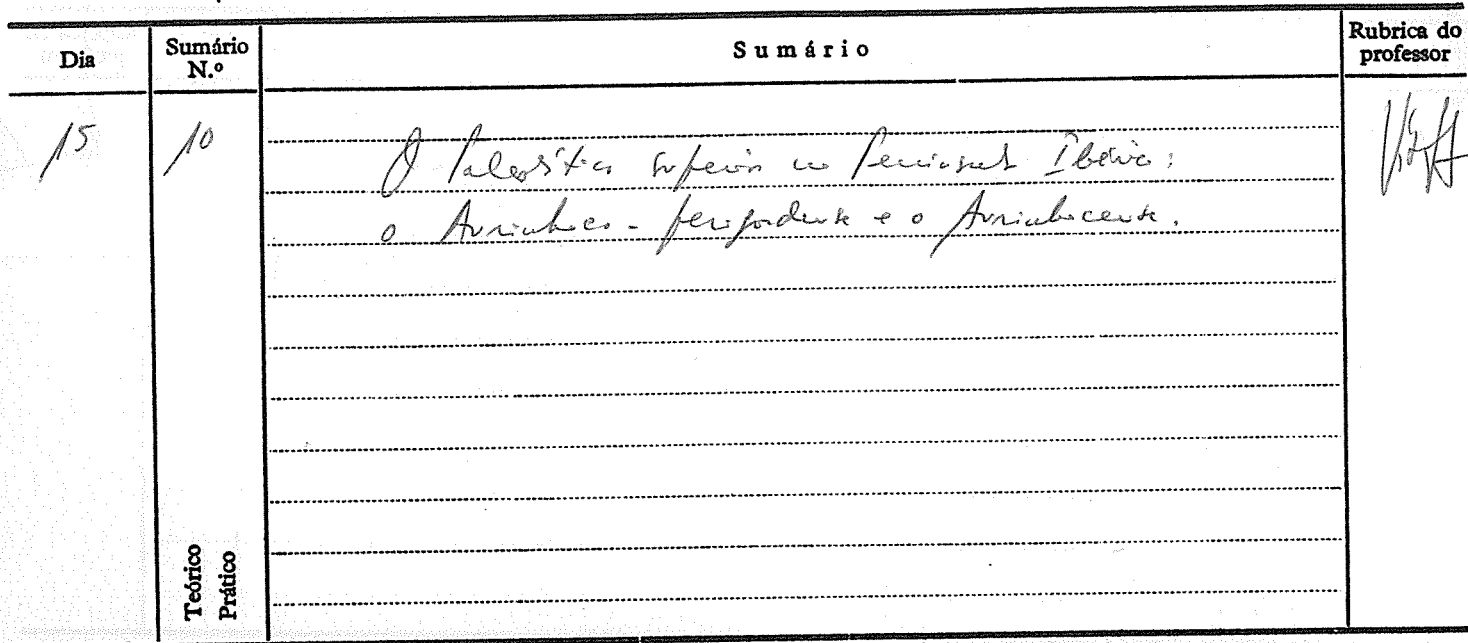 Dia
Sumário N.º
Sumário
Rubrica do professor
15
10
O Paleolítico Superior na Península Ibérica:
o Aurinhaco-perigordense e o Aurinhacense.
Teórico
Prático